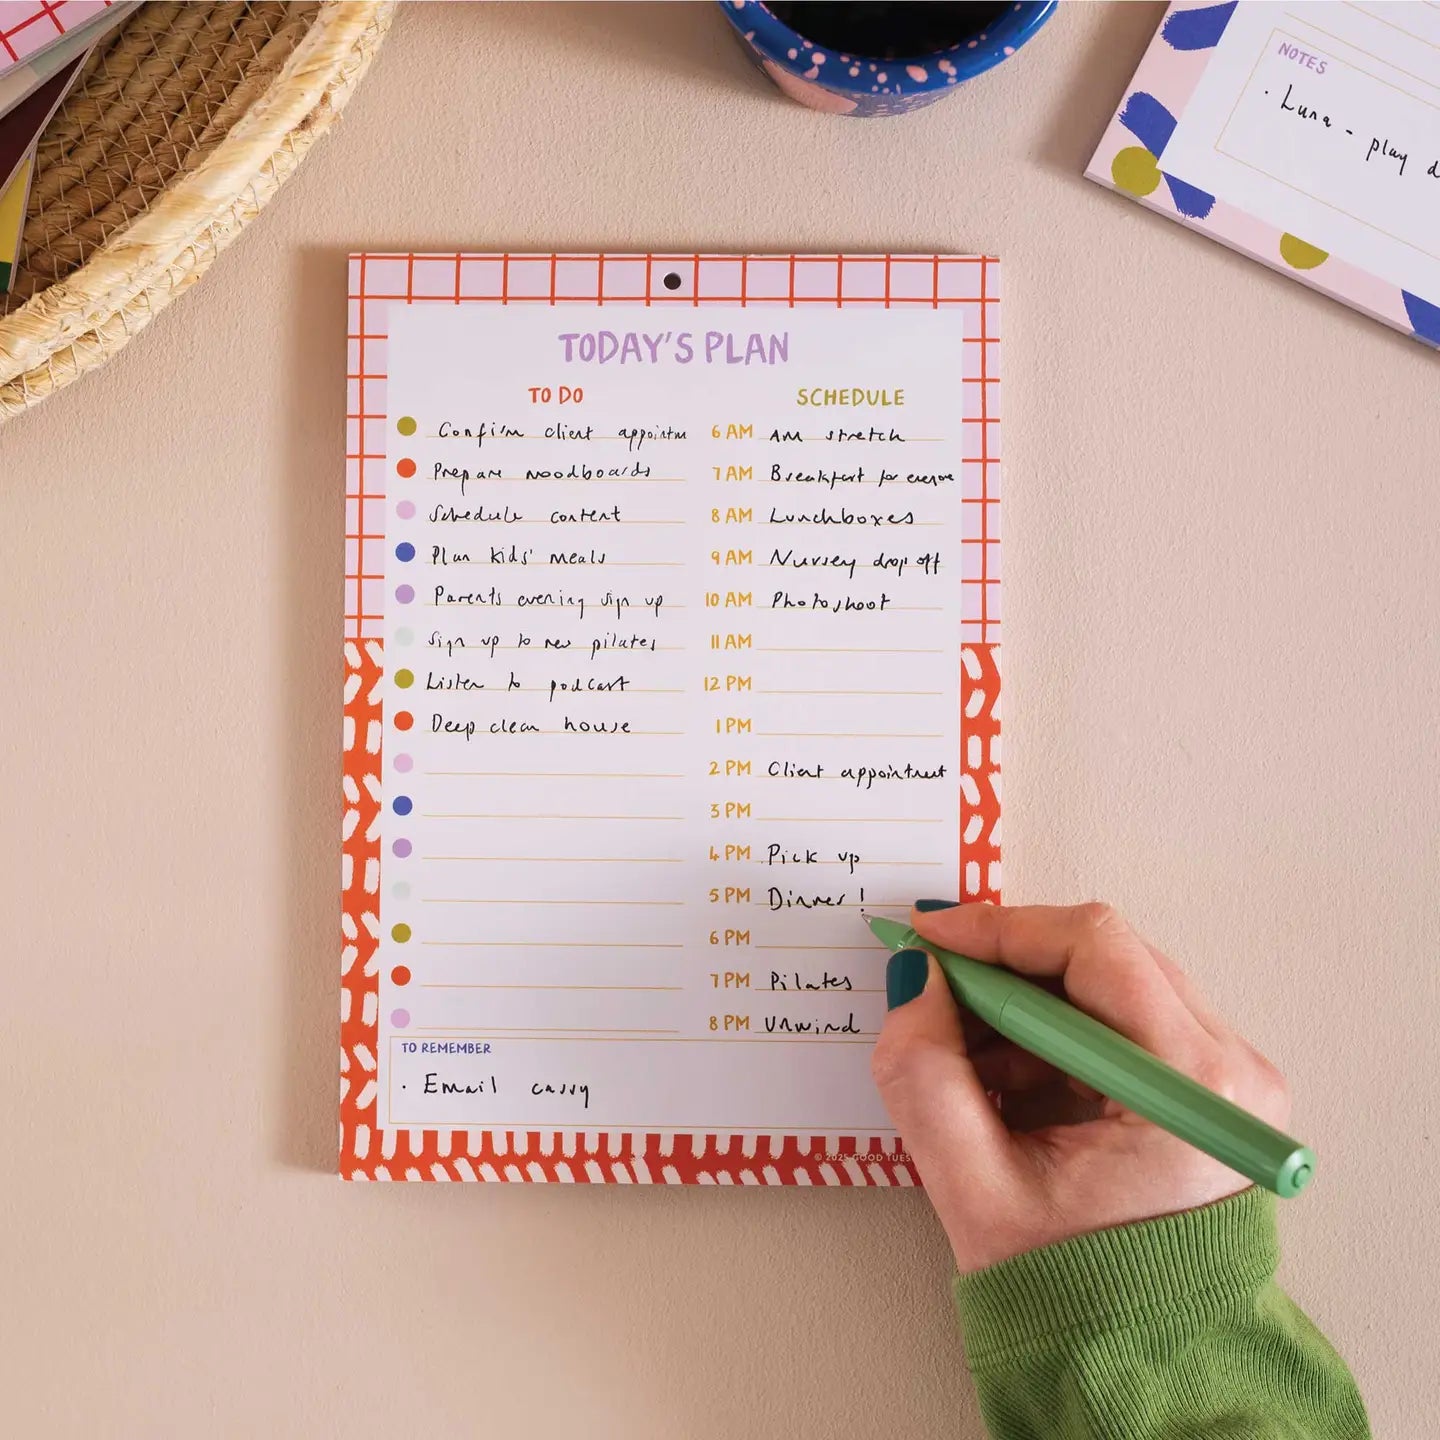 NOTES
· Luna - play d
TODAY'S PLAN
TO DO
Confirm client appointm
Prepare moodboards
Schedule content
Plan kids' meals
Parents evening sign up
Sign up to new pilates
Listen to podcast
Deep clean house
SCHEDULE
6 AM Am stretch
7 AM Breakfast for everyone
8 AM Lunchboxes
9 AM Nursery drop off
10 AM Photoshoot
11 AM
12 PM
1 PM
2 PM Client appointment
3 PM
4 PM Pick up
5 PM Dinner !
6 PM
7 PM Pilates
8 PM Unwind
TO REMEMBER
· Email cassy
© 2025 GOOD TUES